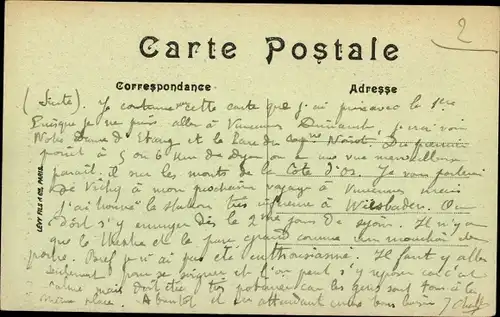 2
Carte Postale
Correspondance
Adresse
(Suite). Je continue sur cette carte que j'ai prise avec la 1ère
Puisque je ne puis aller à Vincennes Dimanche, j'irai voir
Notre Dame d'Etang et le Parc du Noisot. Du premier
point à 5 ou 6 km de Dijon on a une vue merveilleuse
parait-il sur les monts de la Côte d'Or. Je vous parlerai
de Vichy à mon prochain voyage à Vincennes mais
j'ai trouvé la station très inférieure à Wiesbaden. On
doit s'y ennuyer dès le 2me jour de séjour. Il n'y a
que le théatre et le parc grand comme un mouchoir de
poche. Bref je n'ai pas été enthousiasmé. Il faut y aller
seulement pour se soigner et l'on peut s'y reposer car c'est
calme mais doit être très car les gens sont tous à la
même place. A bientôt et en attendant bon baiser
LÉVY FILS & CIE, PARIS.